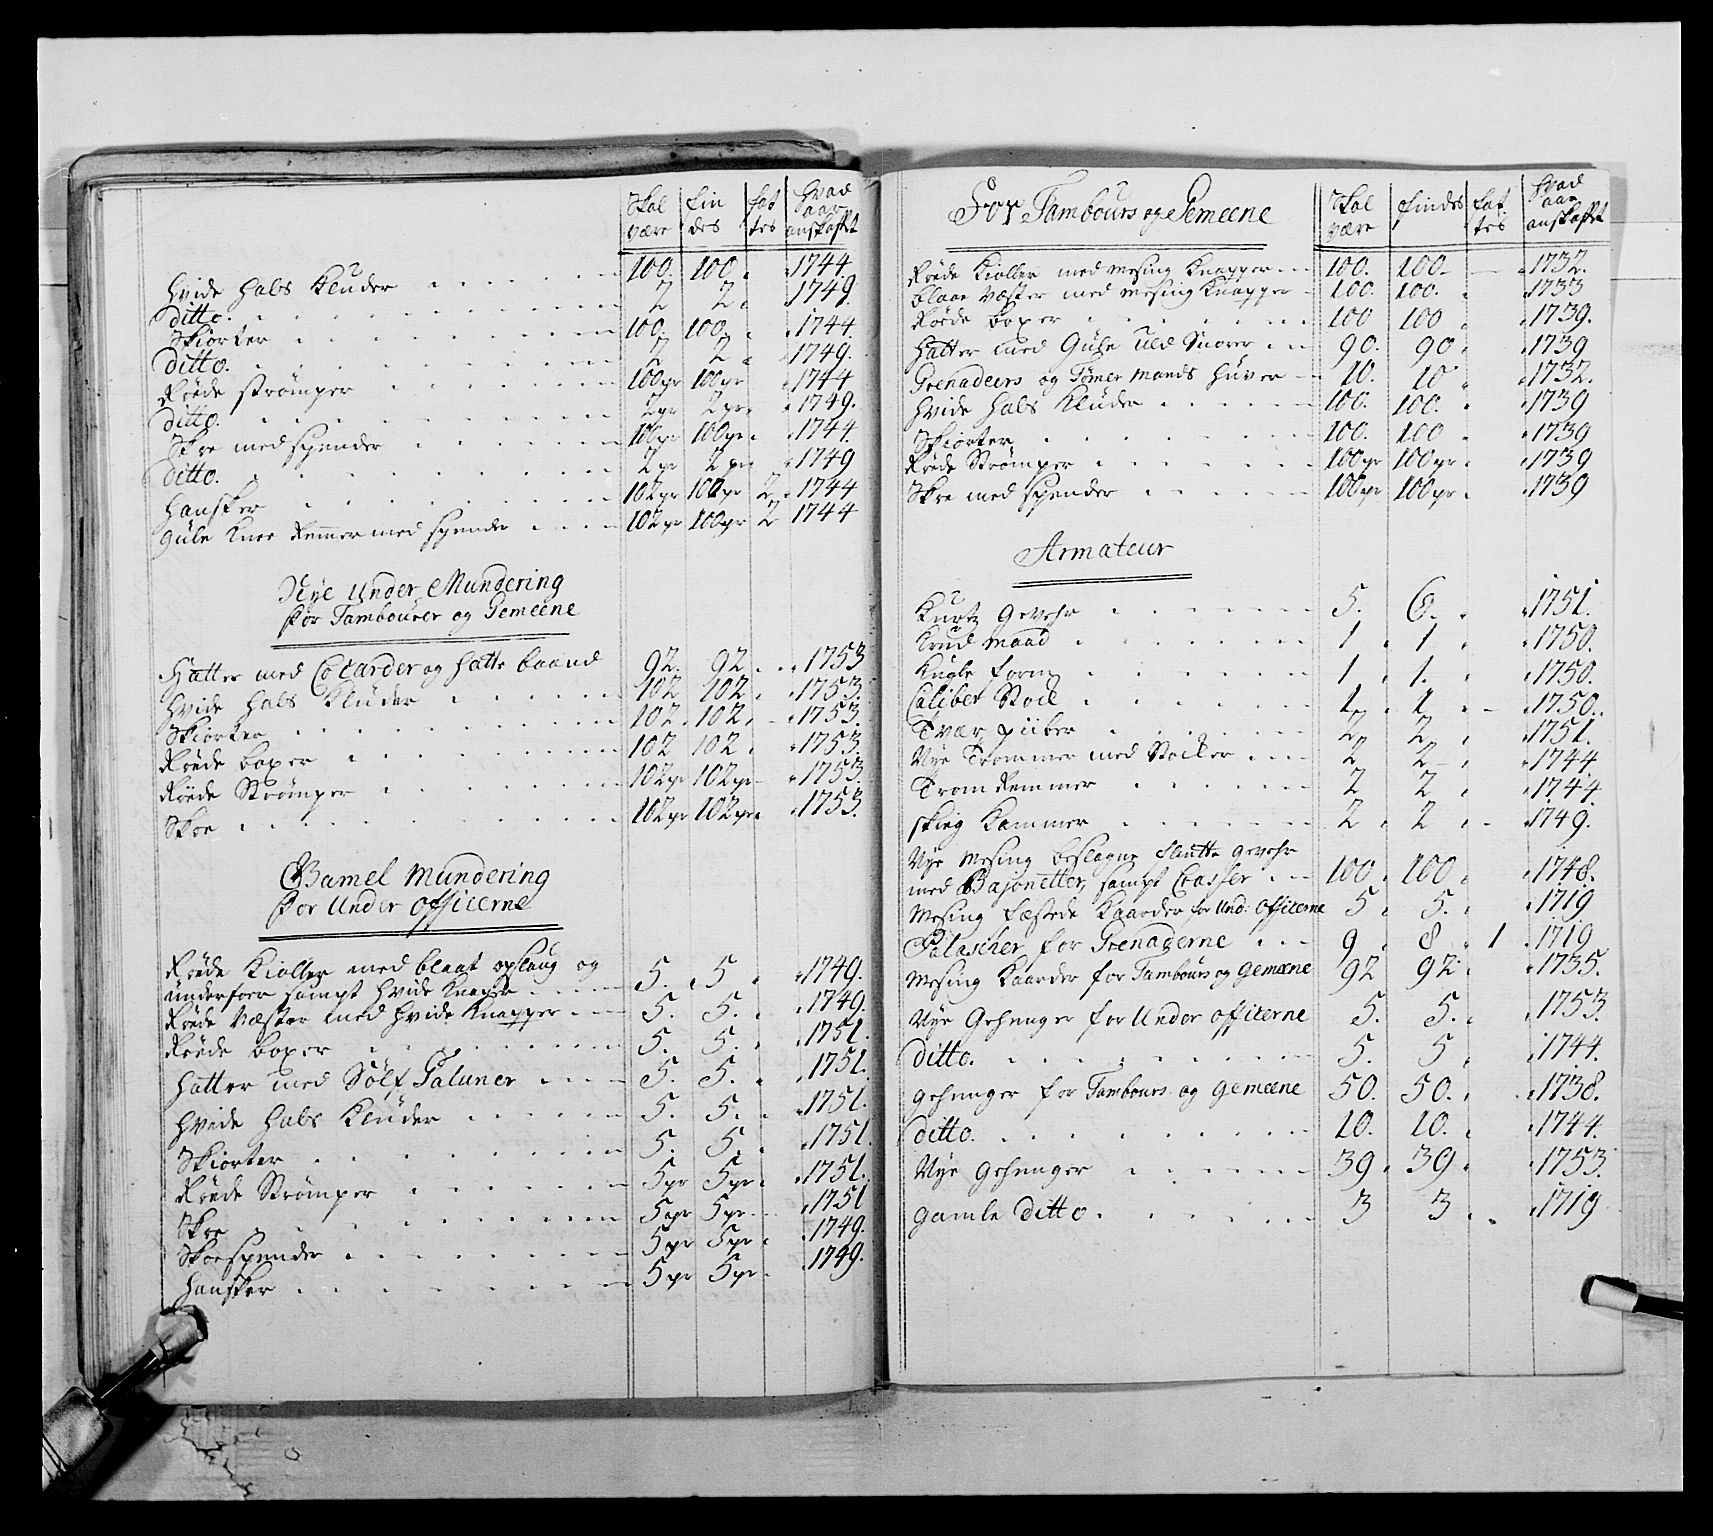 Skal være | Findes | Fattes | Hvad aar anskaffet
Hvide Hals Klude . . . 100. 100 . 1744.
ditto. . . . 2 2. 1749.
Skiorter . . . 100. 100. 1744.
ditto. . . . 2 2 . 1749.
Røde strømper . . . 100pr 100pr . 1744
ditto. . . . 2pr 2pr. . 1749.
Skoe med spender . . . 100pr 100pr . 1744.
ditto. . . . 2pr 2pr . 1749
Hansker . . . 102pr 100pr 2 . 1744
Gule Knee Remmer med spender . . . 102pr 100pr 2 1744
Nye under Mundering
for Tambourer og Gemeene
Hatter med Cocarder og hatte baand 92. 92 . . . 1753
Hvide Hals Klude . . . 102 102 . 1753.
Skiorter . . . 102 . 102 . 1753.
Røde boxer . . . 102 102 . 1753.
Røde Strømper . . . 102pr 102pr . 1753.
Skoe . . . 102pr 102pr. . 1753.
Gamel Mundering
for Under Officerne
Røde Kioller med blaat opslaug og
underfoer sampt hvide Knaper . . . 5. 5. . 1749.
Røde Væster med hvide Knapper . . . 5. 5. . 1749.
Røde boxer . . . 5. 5. . 1751.
Hatter med Sølf Galuner . . . 5. 5. . 1751.
Hvide Hals Klude . . . 5. 5. . 1751.
Skiorter . . . 5. 5. . 1751.
Røde Strømper . . . 5pr 5pr . 1751.
Skoe . . . 5pr 5pr . 1751
Skoespender . . . 5pr 5pr . 1749.
Hansker . . . 5pr 5pr . 1749.
For Tambours og Gemeene | Skal være | Findes | Fattes | Hvad aar anskaffet
Røde Kioller med Mesing Knapper . . . 100. 100. . 1732.
blaae Væster med Mesing Knapper . 100. 100. . 1733
Røde boxer . . . 100 100 . 1739.
Hatter med Gule Uld Snorer . . . 90. 90 . 1739
Grenadeers og Tømer mands Huver . 10. 10 . 1732.
Hvide Hals Klude . . . 100. 100. . 1739
Skiorter . . . 100. 100 . 1739
Røde Strømper . . . 100pr 100pr . 1739
Skoe med spender . . . 100pr 100pr . 1739
Armateur
Kurtz Gevehr . . . 5. 6. . 1751.
Krud Maad . . . 1 . 1 . 1750.
Kugle form . . . 1 . 1. . 1750.
Caliber Stoel . . . 1 . 1 . 1750.
Tvær piiber . . . 2 2 . 1751.
Nye Trommer med Stocker . . . 2 2 . 1744
Trom Remmer . . . 2 2 . 1744.
Kammer . . . 2 . 2 . 1749.
Nye Mesing beslagne Flinte Gevehr
med Bajonetter, sampt Casser . . . 100 . 100 . 1748.
Mesing fæstede Kaarder for Und: Officerne 5 . 5. . 1719
Palascher for Grenaderne . . . 9 . 8 . 1 . 1719
Mesing Kaarder for Tambours og Gemeene 92 92 . 1735.
Nye Gehenger for Under Officerne 5. 5. . 1753.
ditto. . . . 5. 5 . 1744.
Gehenger for Tambours og Gemeene 50. 50. . 1738.
ditto. . . . 10. 10. . 1744.
Nye Gehenger . . . 39 . 39 . 1753.
gamle ditto . . . 3 3 . . 1719